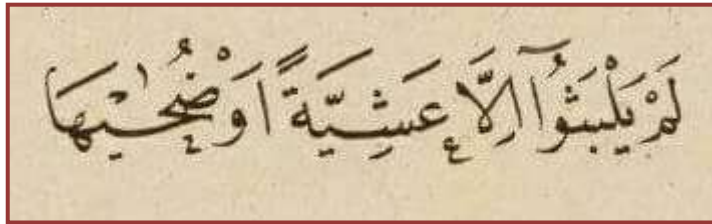 لَمْ يَلْبَثُوٓا اِلَّا عَشِيَّةً اَوْ ضُحٰيهَا